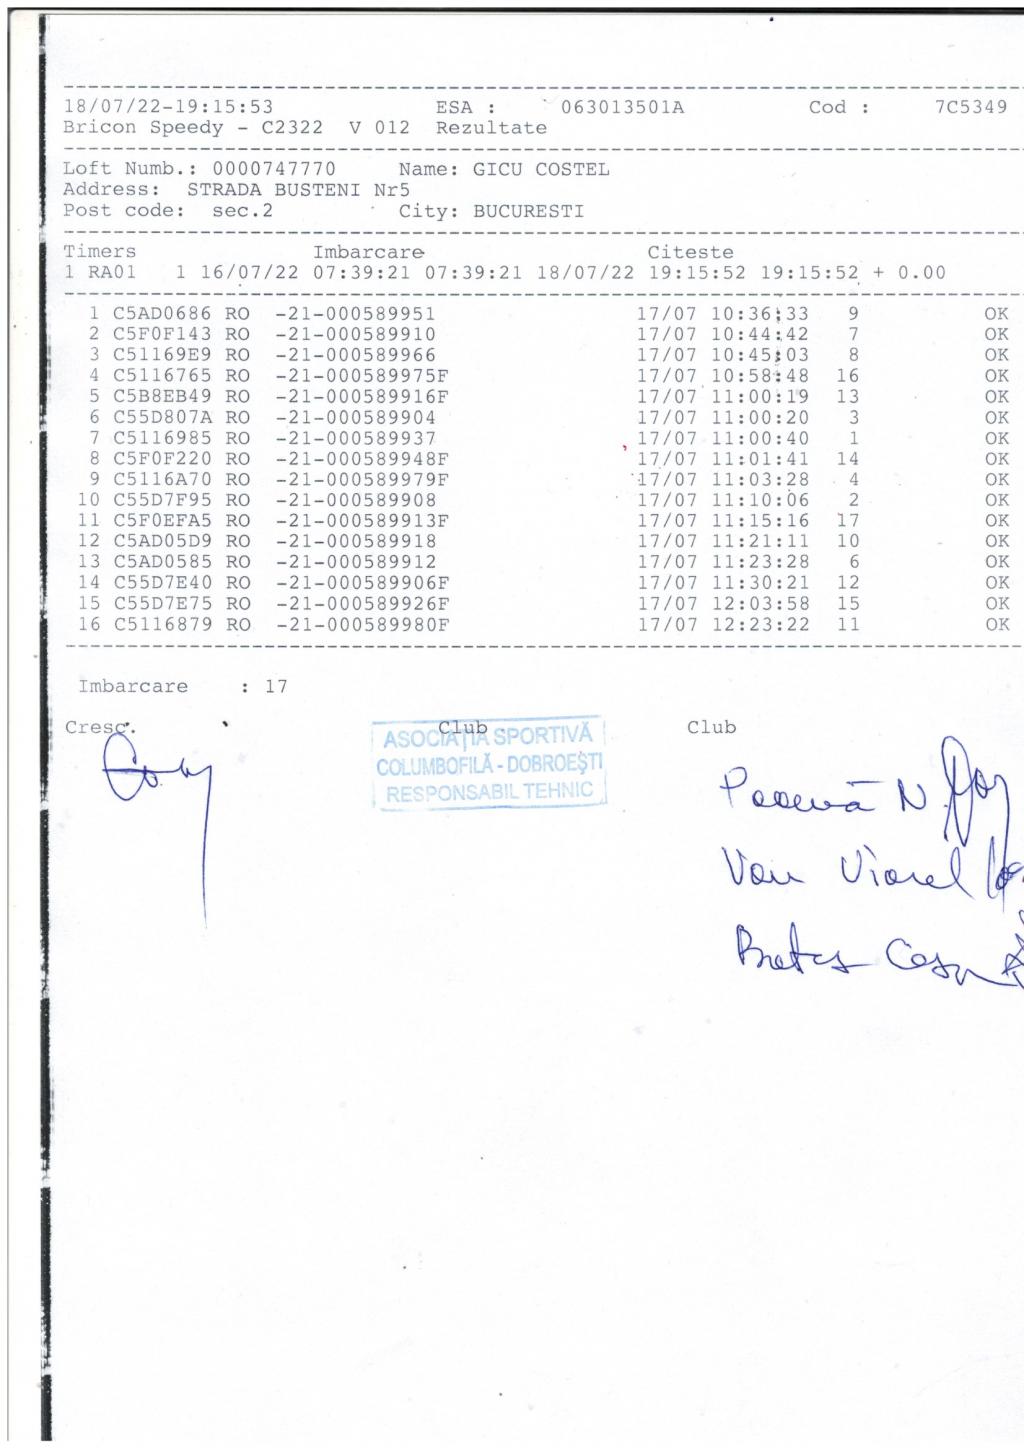 18/07/22-19:15:53 ESA : 063013501A Cod : 7C5349
Bricon Speedy - C2322 V 012 Rezultate
Loft Numb.: 0000747770 Name: GICU COSTEL
Address: STRADA BUSTENI Nr5
Post code: sec.2 City: BUCURESTI
Timers Imbarcare Citeste
1 RA01 1 16/07/22 07:39:21 07:39:21 18/07/22 19:15:52 19:15:52 + 0.00
1 C5AD0686 RO -21-000589951 17/07 10:36:33 9 OK
2 C5F0F143 RO -21-000589910 17/07 10:44:42 7 OK
3 C51169E9 RO -21-000589966 17/07 10:45:03 8 OK
4 C5116765 RO -21-000589975F 17/07 10:58:48 16 OK
5 C5B8EB49 RO -21-000589916F 17/07 11:00:19 13 OK
6 C55D807A RO -21-000589904 17/07 11:00:20 3 OK
7 C5116985 RO -21-000589937 17/07 11:00:40 1 OK
8 C5F0F220 RO -21-000589948F 17/07 11:01:41 14 OK
9 C5116A70 RO -21-000589979F 17/07 11:03:28 4 OK
10 C55D7F95 RO -21-000589908 17/07 11:10:06 2 OK
11 C5F0EFA5 RO -21-000589913F 17/07 11:15:16 17 OK
12 C5AD05D9 RO -21-000589918 17/07 11:21:11 10 OK
13 C5AD0585 RO -21-000589912 17/07 11:23:28 6 OK
14 C55D7E40 RO -21-000589906F 17/07 11:30:21 12 OK
15 C55D7E75 RO -21-000589926F 17/07 12:03:58 15 OK
16 C5116879 RO -21-000589980F 17/07 12:23:22 11 OK
Imbarcare : 17
Cresc. Club Club
ASOCIAȚIA SPORTIVĂ
COLUMBOFILĂ - DOBROEȘTI
RESPONSABIL TEHNIC
N.
Viorel